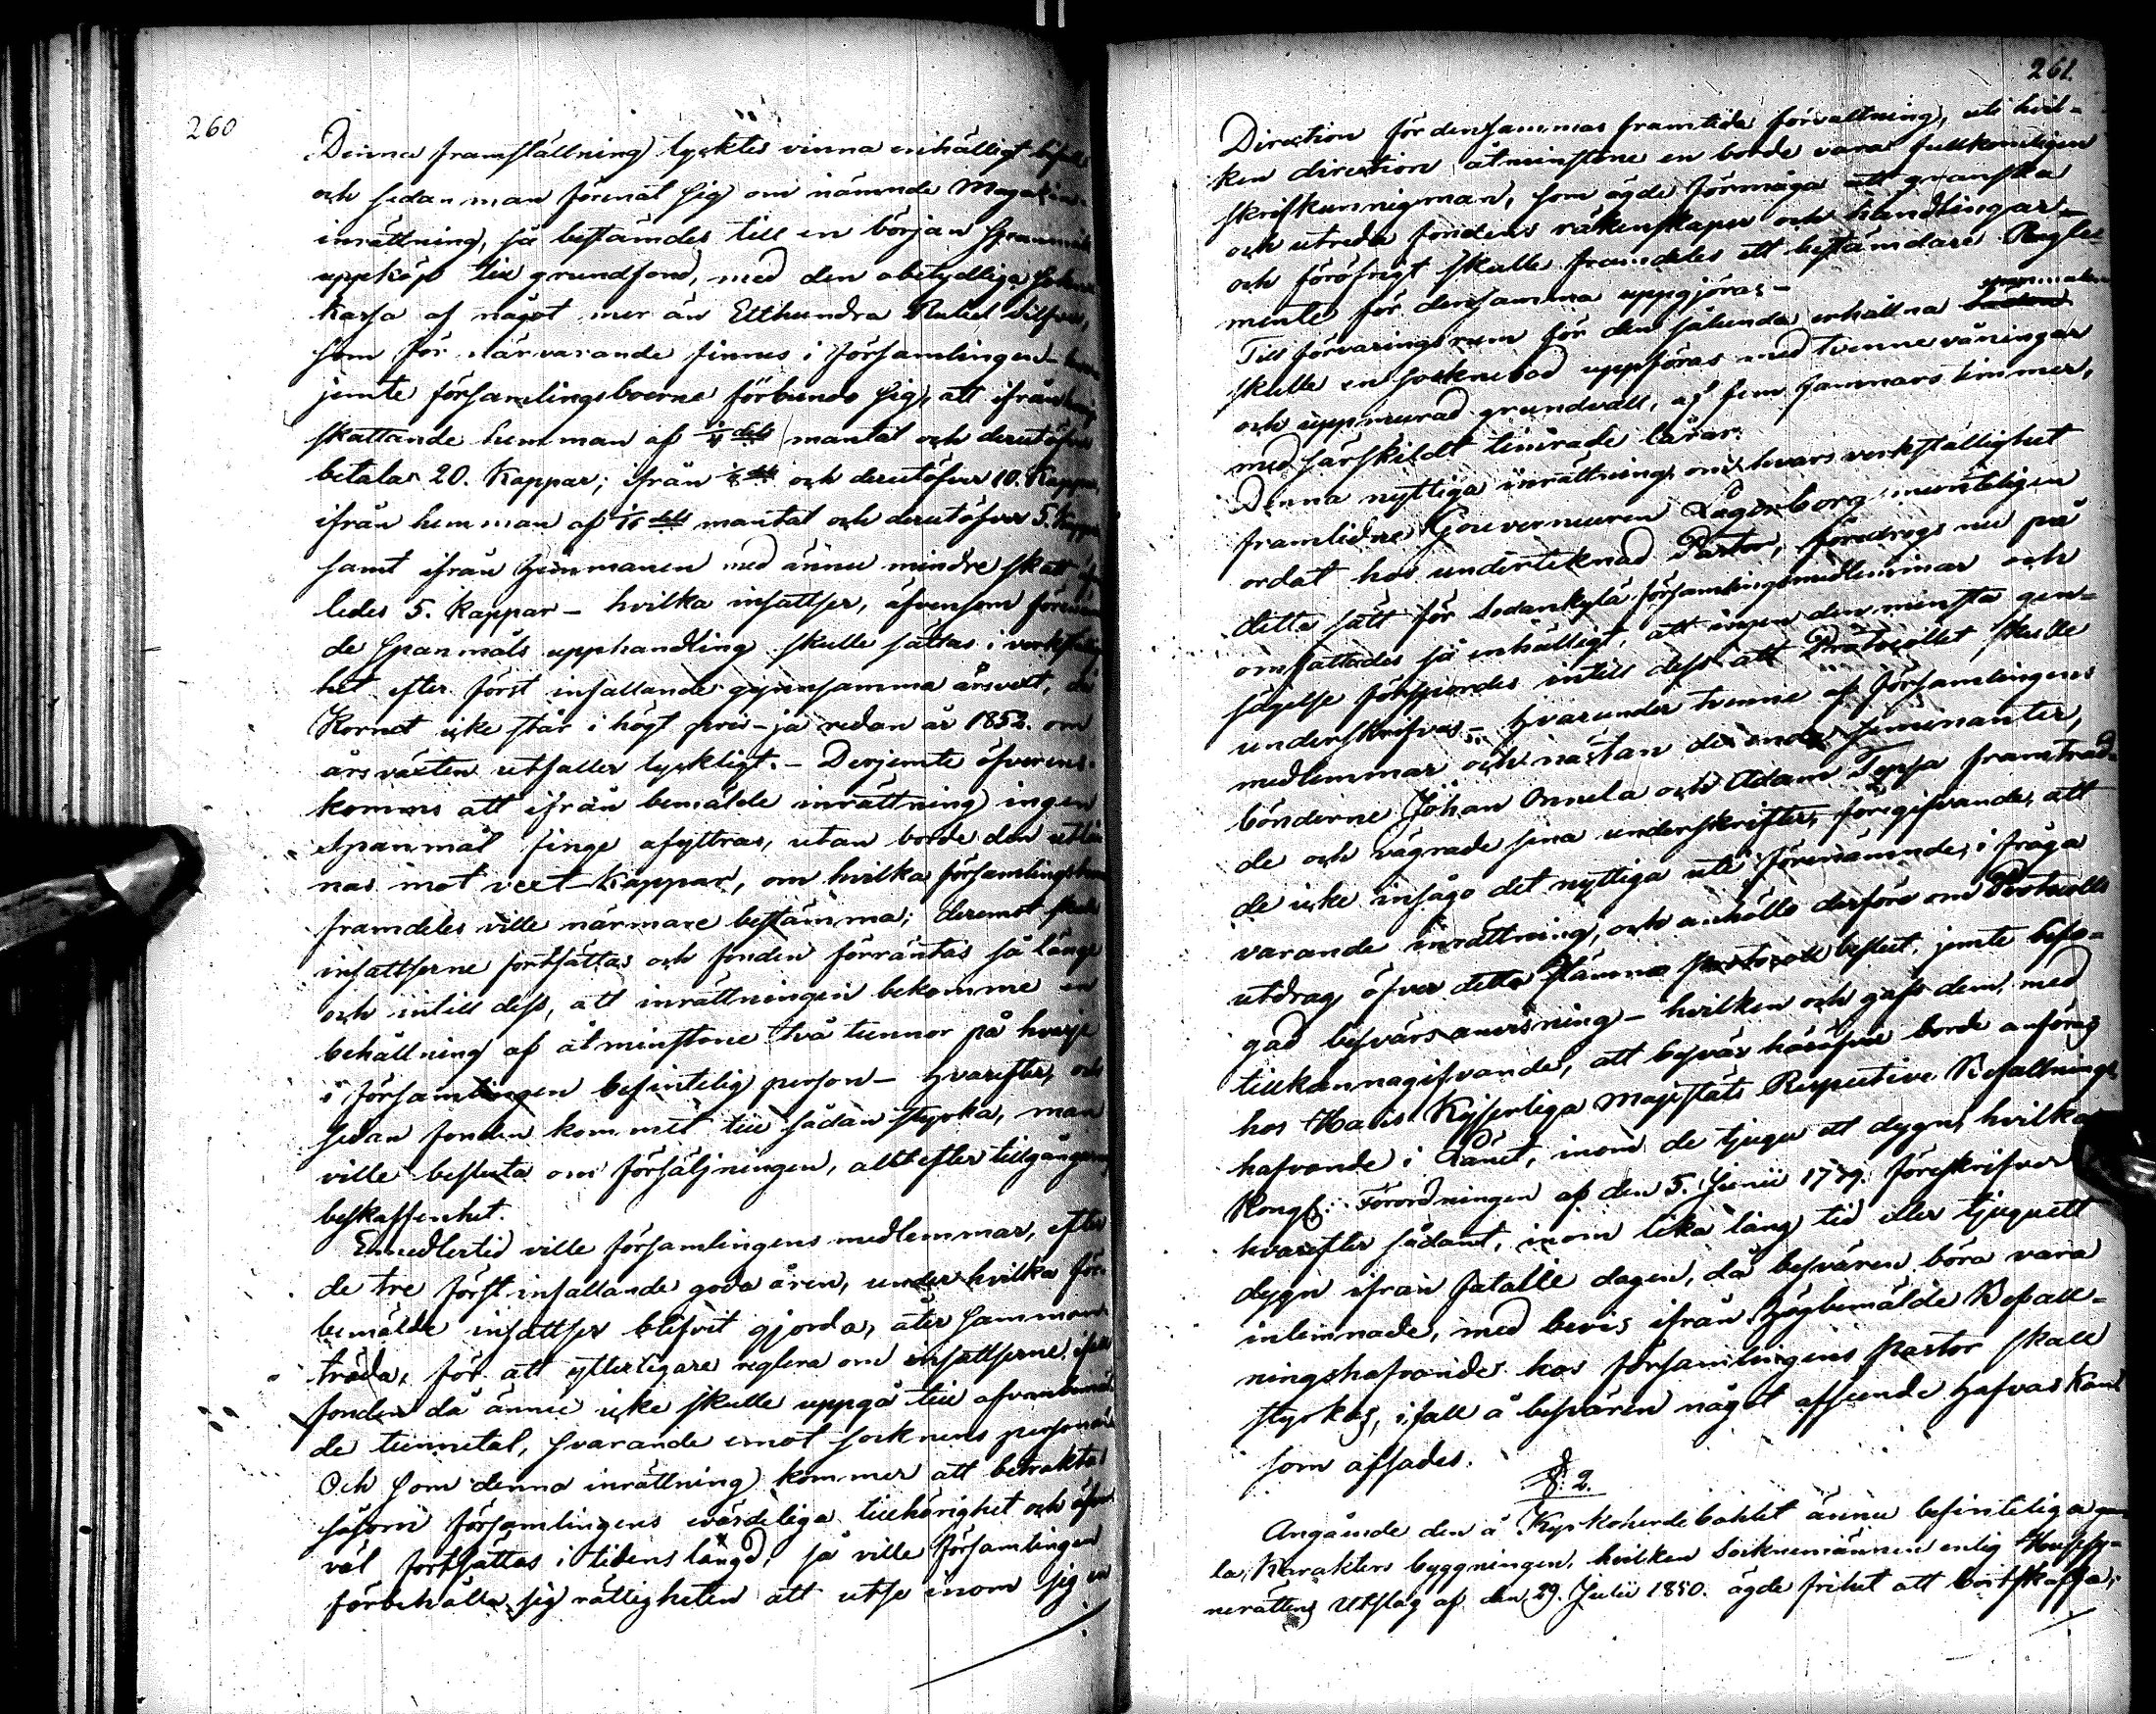 260
Denna framställning tycktes vinna enhälligt bifall
och sedan man förenat sig om nämnde Magasins
inrättning, så bestämdes till en början Spannmåls
uppköp till grundfond, med den obetydliga
kassa af något mer än Etthundra Rubel Silfver,
som för närvarande finnes i församlingen –
jemte församlingsboerne förbundo sig, att ifrån
skattande hemman af 1/4 dels mantal och derutöfver
betala 20. Kappar; ifrån 1/8 dels och derutöfver 10. Kappar,
ifrån hemman af 1/16 dels mantal och derutöfver 5. Kappar
samt ifrån Hemmanen med ännu mindre skatt,
ledes 5. Kappar – hvilka insattser, äfvensom förenämn
de Spanmåls upphandling skulle sättas i verkställig
het efter först infallande gynnsamma årsvext, då
Kornet icke står i högt pris – ja redan år 1852. om
årsväxten utfaller lyckligt. – Derjemte öfverens-
koms att ifrån bemälde inrättning ingen
Spanmål finge afyttras, utan borde den utlå
nas mot vext-Kappar, om hvilka församlingsboerne
framdeles ville närmare bestämma; deremot skulle
insattserne fortsättas och fonden förräntas så länge
och intill dess, att inrättningen bekomme en
behållning af åtminstone två tunnor på hvarje
i församlingen befintelig person – Hvarefter, och
sedan fonden kommit till sådan styrka, man
ville besluta om försäljningen, allt efter tillgångarnes
beskaffenhet.
Emedlertid ville församlingens medlemmar, efter
de tre först infallande goda åren, under hvilka för
bemälde insattser blifvit gjorda, åter samman
träda, för att ytterligare reglera om insattserne, ifall
fonden då ännu icke skulle uppgå till ofvanbemäl
de tunnetal, svarande emot socknens personal
Och som denna inrättning kommer att betraktas
såsom församlingens evärdeliga tillhörighet och
väl fortsättas i tidens längd, så ville församlingen
förbehålla sig rättigheten att utse inom sig en
261.
Direction för densammas framtida förvaltning, uti hvil-
ken direction åtminstone en borde vara fullkomligen
skrifkunnig man, som ägde förmåga att granska
och utreda fondens räkenskaper och handlingar –
och föröfrigt skulle framdeles ett bestämdare Regle-
mente för densamma uppgjöras –
Till förvaringsrum för den sålunda erhållna spannmålen
skulle en sockne bod uppföras med tvenne våningar
och uppmurad grundvall, af fem famnars timmer,
med särskildt timrade lårar.
Denna nyttiga inrättning, om hvars verkställighet
framlidne Gouverneuren Lagerborg munteligen
ordat hos undertecknad Pastor, föredrogs nu på
detta sätt för Sodankylä församlingsmedlemmar och
omfattades så enhälligt, att ingen den minsta gen-
sägelse försports intill dess att Protocollet skulle
underskrifvas – hvarunder tvenne af församlingens
medlemmar och nästan de enda Jemmanter,
bönderne Johan Onnela och Adam framträd-
de och vägrade sina underskrifter, föregifvande, att
de icke insågo det nyttiga uti förenämnde, i fråga
varande inrättning, och anhöllo derföre om Protocolls
utdrag öfver detta stämma beslut, jemte befo-
gad besvärs anvisning – hvilken och gafs dem, med
tillkännagifvande, att besvär häröfver borde anföras
hos Hans Kejserliga Majestäts Respective Befallnings-
hafvande i Länet, inom de tjugu ett dygn, hvilka
Kongl. Förordningen af den 5. Junii 1779. föreskrifver
hvarefter sådant, inom lika lång tid eller tjuguett
dygn ifrån fatalie dagen, då besvären böra vara
inlemnade, med bevis ifrån Högbemälde Befall-
ningshafvande hos församlingens Pastor skall
styrkas, ifall å besvären något afseende hafvas kan
som afsades.
§ 2.
Angående den å Kyrkoherdebohlet ännu befinteliga gam
la, Karakters byggningen, hvilken Socknemännen enlig Husesy-
nerättens Utslag af den 29. Julii 1850. ägde frihet att bortskaffa;